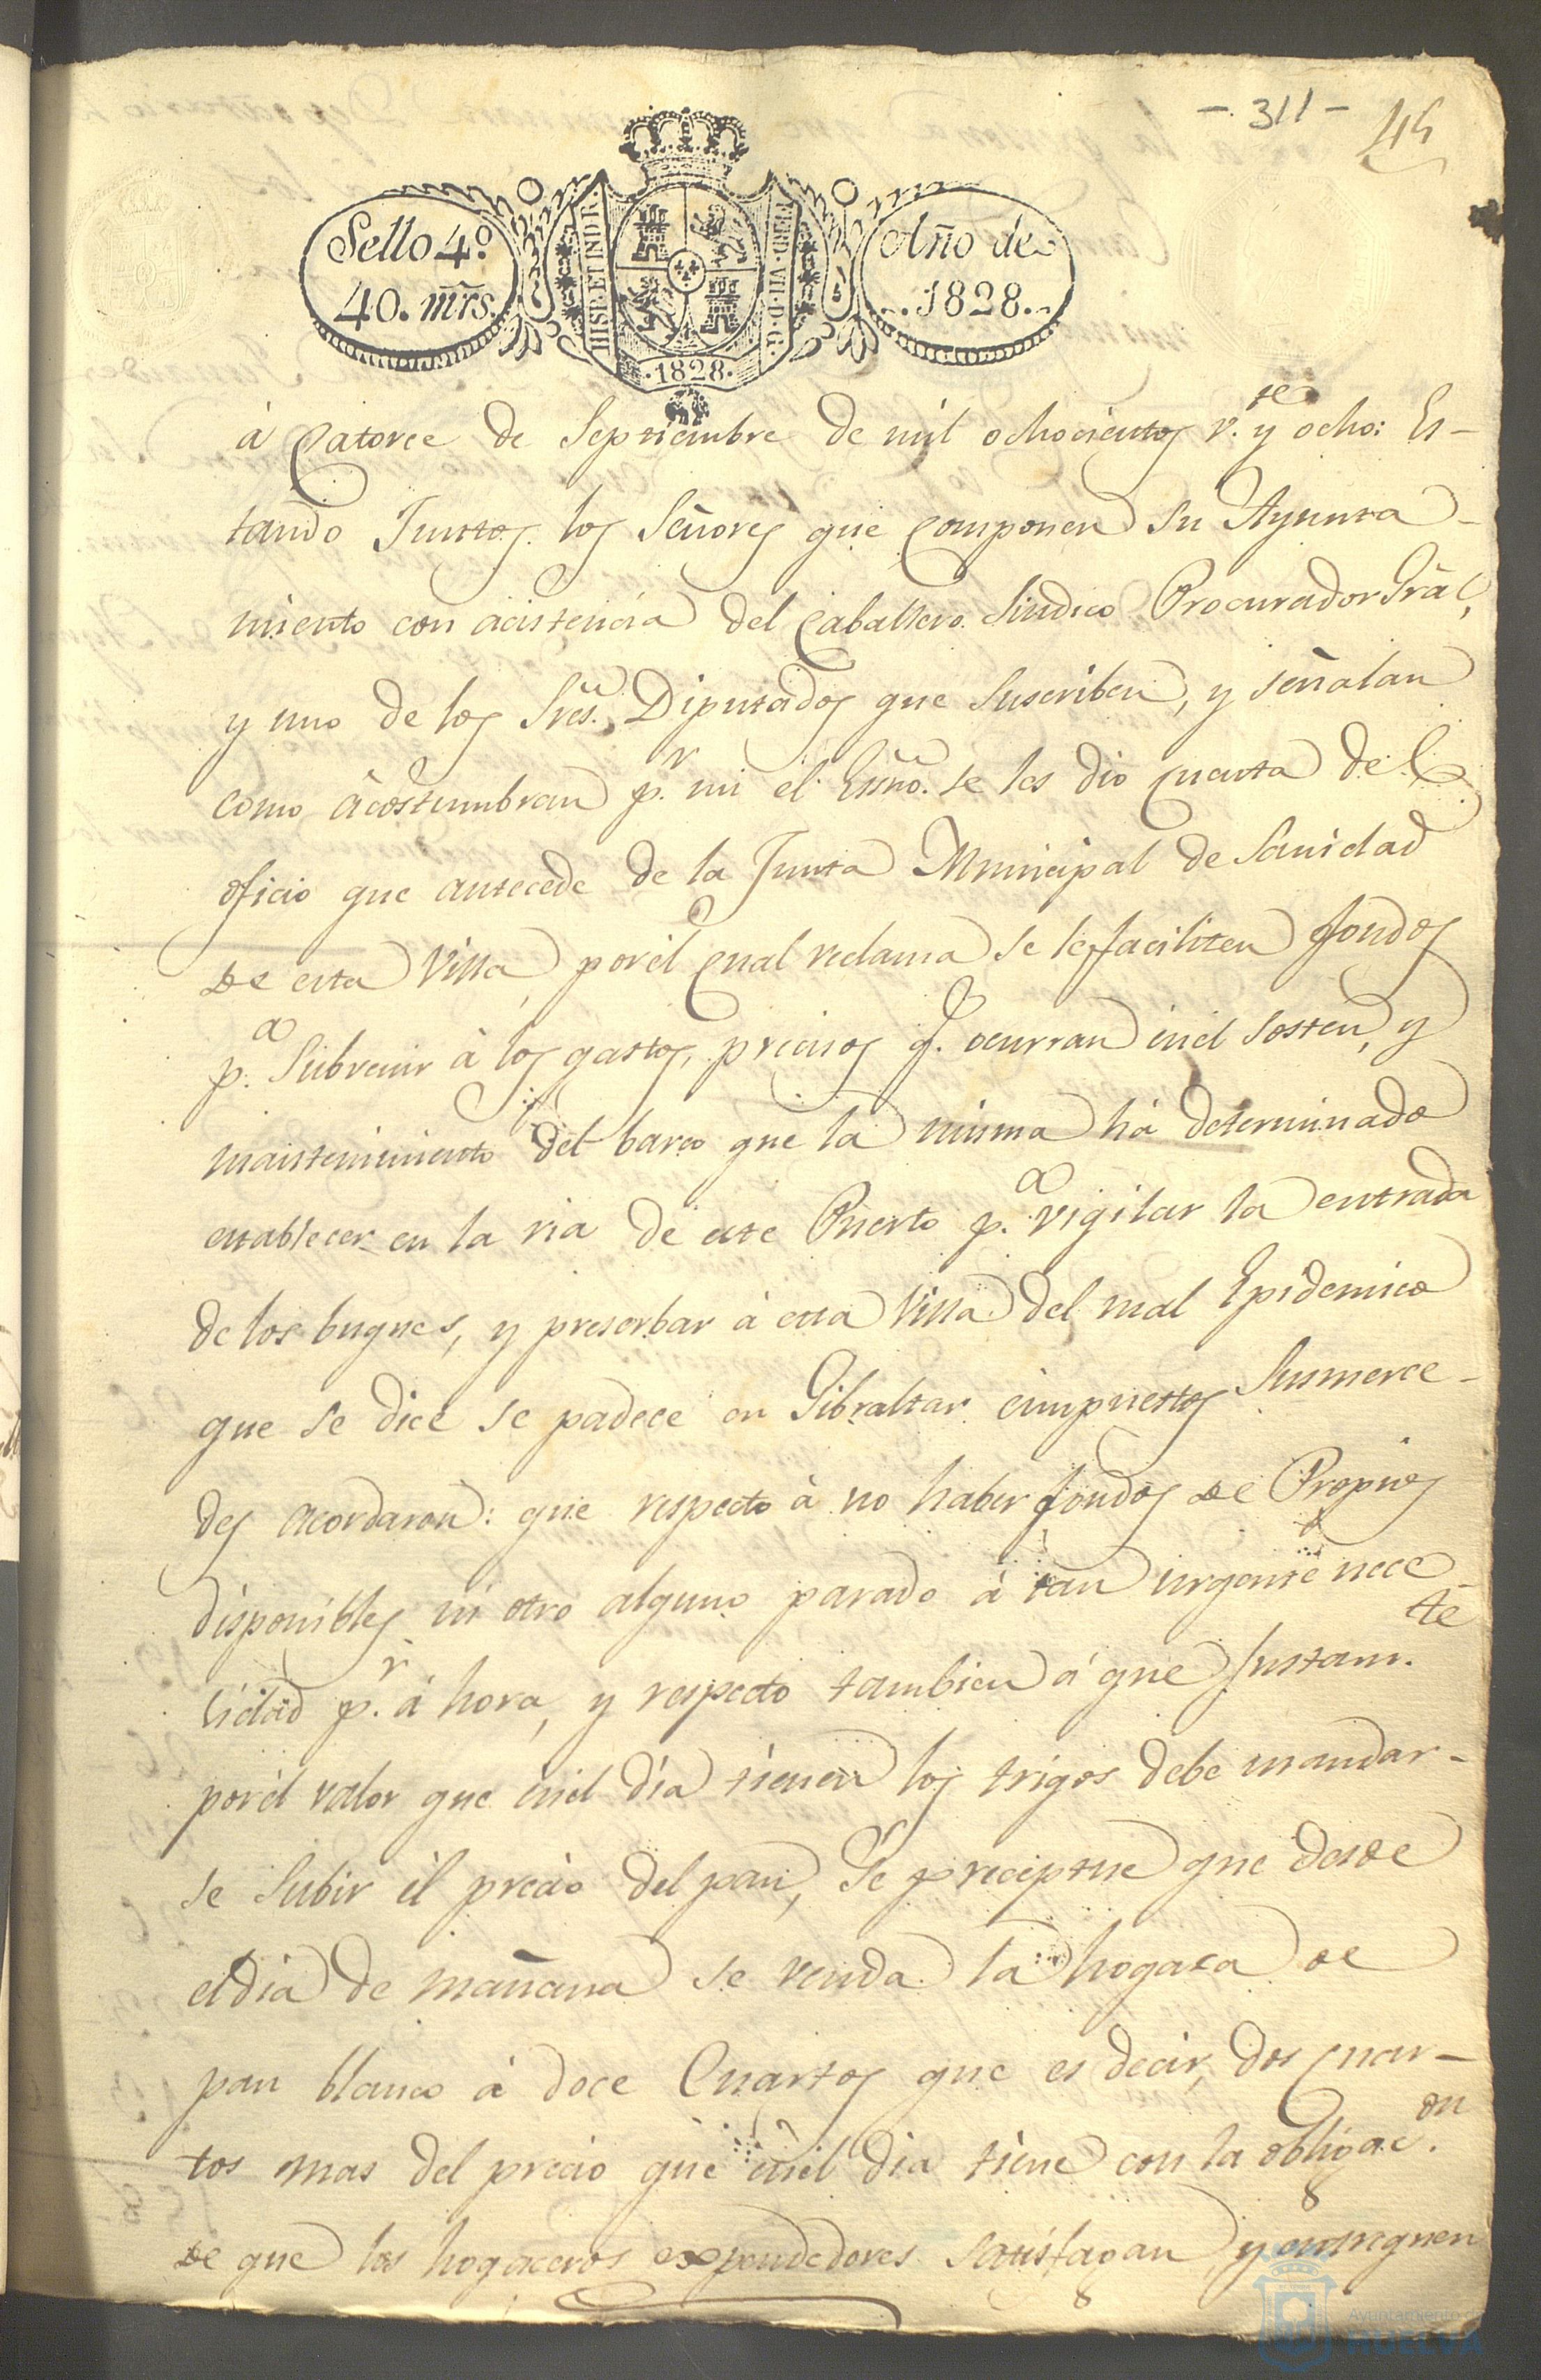 - 311 -
45
Sello 4.º
40. mrs.
HISP. ET IND R.
FERD. VII. D. G.
Año de
1828.
.1828.
à Catorce de Septiembre de mil ochocientos v.te y ocho: Es-
tando Juntos los Señores que componen su Ayunta-
miento con acistencia del Caballero Sindico Procurador Grāl,
y uno de los Sres. Diputados que Suscriben, y señalan
como àcostumbran p.r mi el Essño. se les dio cuenta del
oficio que antecede de la Junta Municipal de Sanidad
de esta Villa, por el qual reclama se le faciliten fondos
p.a Subvenir à los gastos, precisos q. ocurran en el sosten, y
mantenimiento del barco que la misma hà determinado
establecer en la ria de este Puerto p.a vigilar la entrada
de los buques, y preserbar à esta Villa del mal Epidemico
que se dice se padece en Gibraltar: èimpuestos Susmerce-
des acordaron: que respecto à no haber fondos de Propios
disponibles ni otro alguno parado à tan urgente nece-
cidad p.r à hora, y respecto tambien à que Justam.te
por él valor que en el dia tienen los trigos debe mandar-
se Subir él precio del pan, Se preceptue que desde
el dia de mañana se venda la hogasa de
pan blanco à doce Cuartos que es decir, dos cuar-
tos mas del precio que en el dia tiene con la obligac.on
de que los hogaceros expendedores satisfagan, y entreguen
Ayuntamiento de
HUELVA